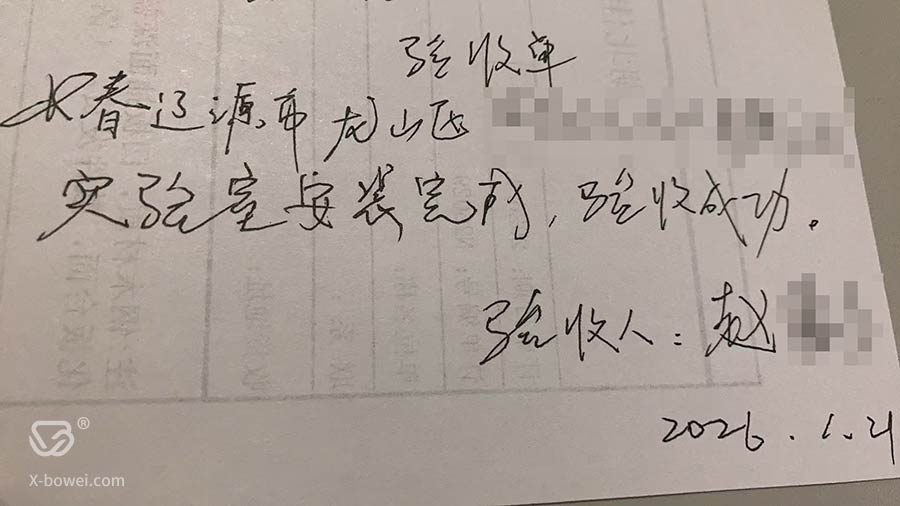 验收单
长春辽源市龙山区
实验室安装完成，验收成功。
验收人：赵
2026.1.21
X-bowei.com